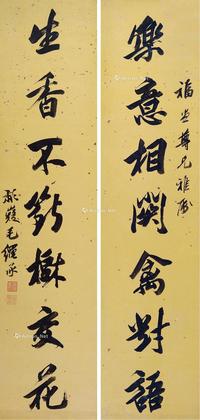 福生尊兄雅屬
樂意相關禽對語
生香不斷樹交花
毛